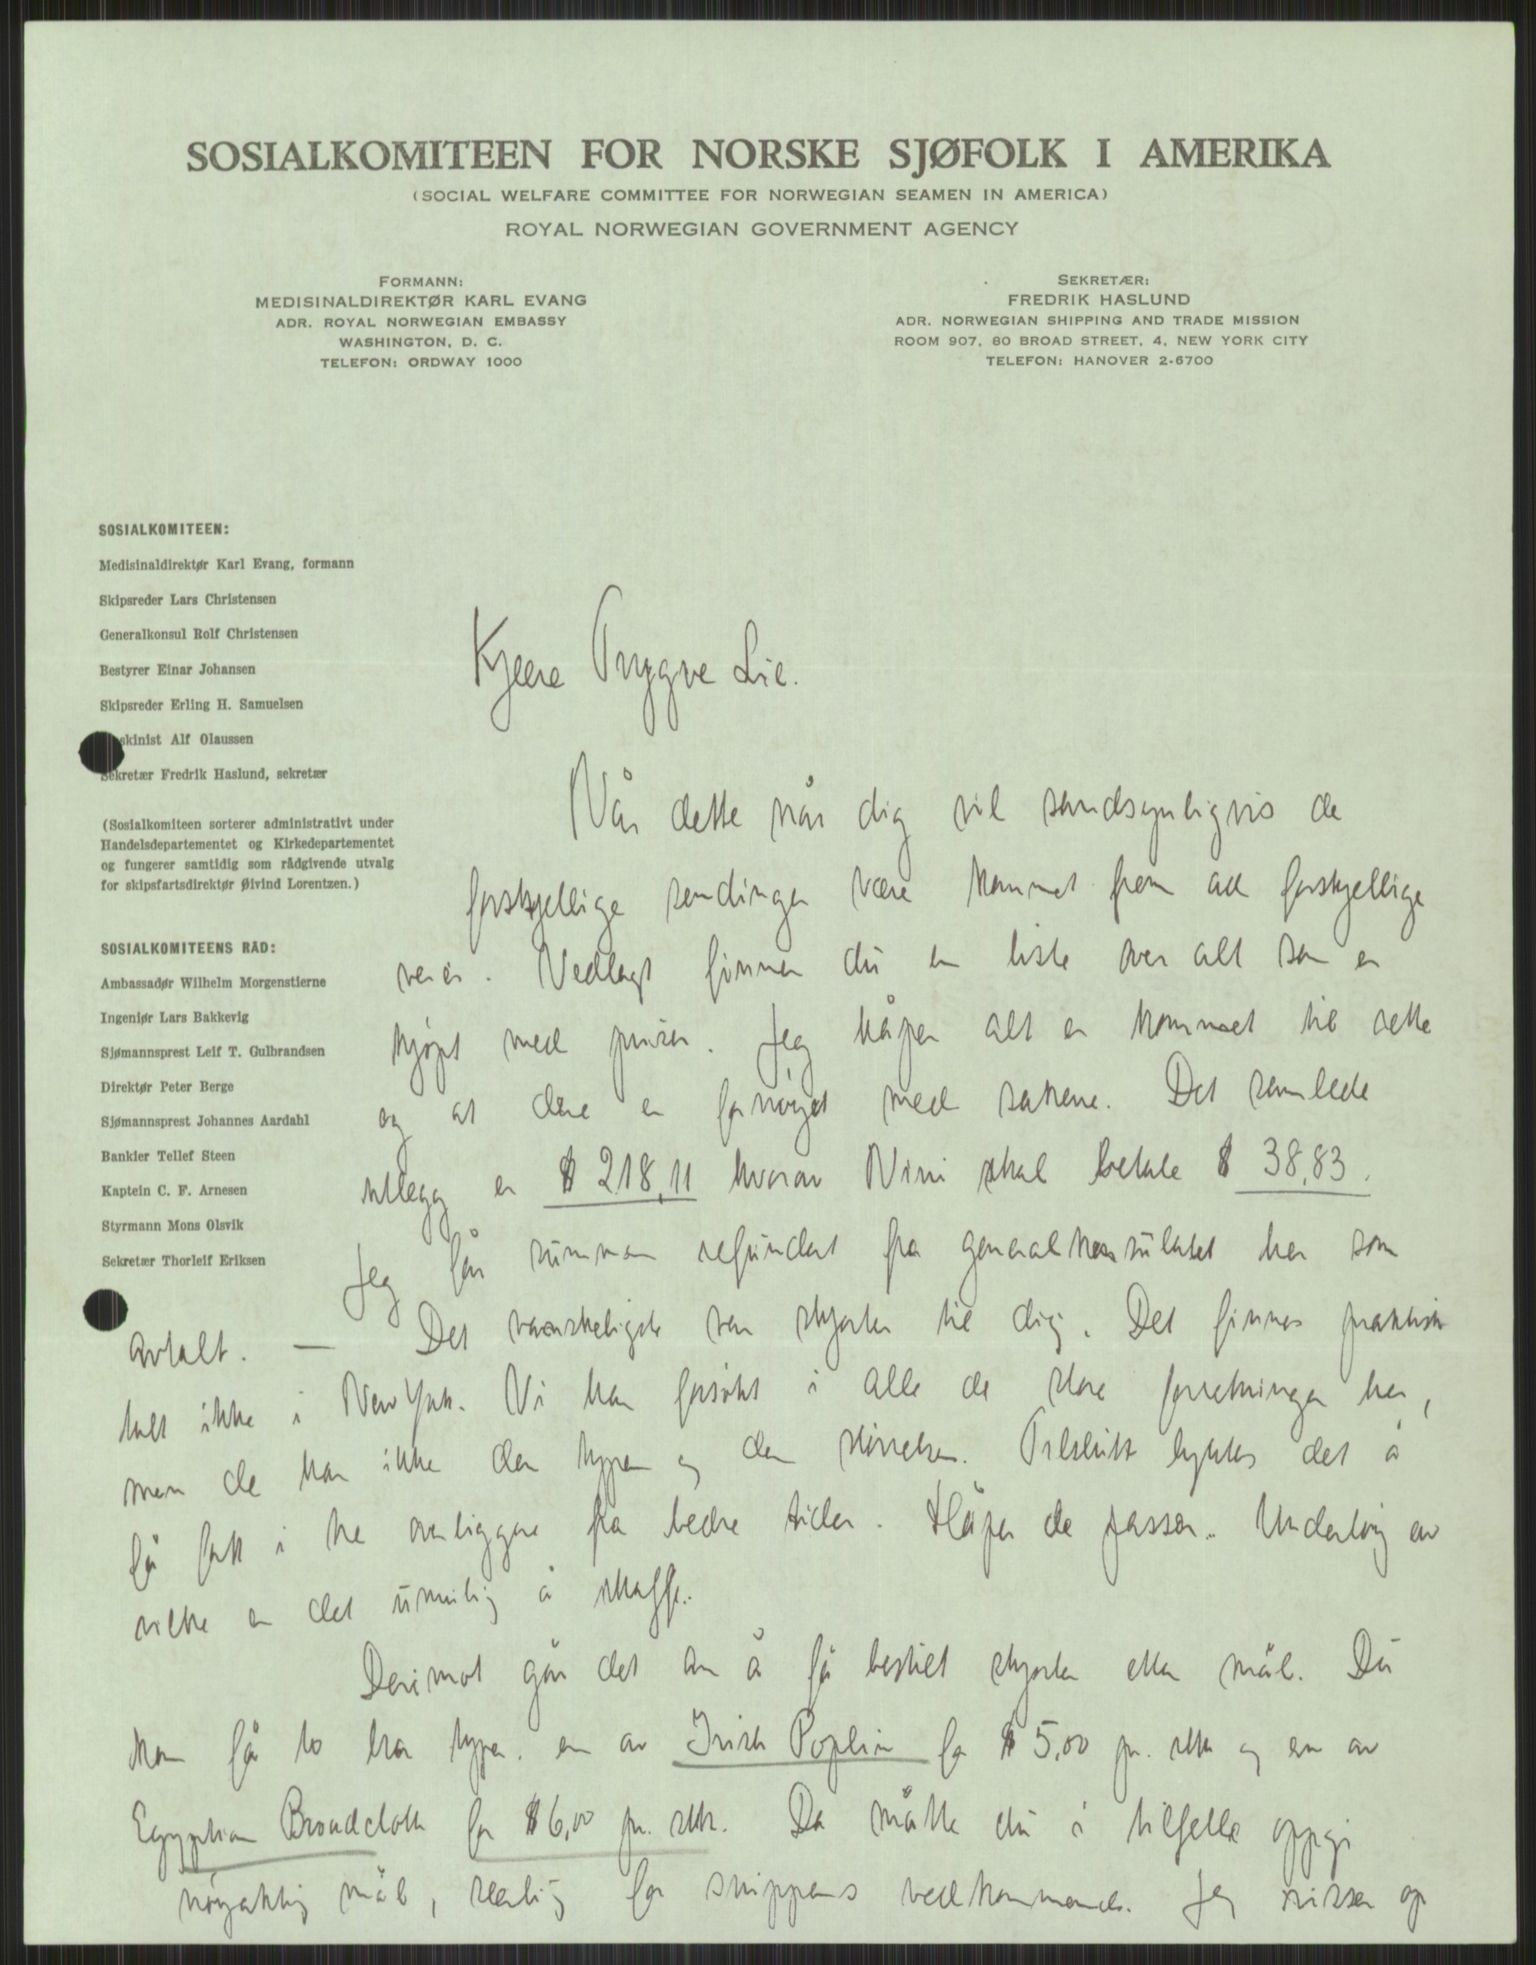 SOSIALKOMITEEN FOR NORSKE SJØFOLK I AMERIKA
(SOCIAL WELFARE COMMITTEE FOR NORWEGIAN SEAMEN IN AMERICA)
ROYAL NORWEGIAN GOVERNMENT AGENCY
FORMANN:
MEDISINALDIREKTØR KARL EVANG
ADR. ROYAL NORWEGIAN EMBASSY
WASHINGTON, D. C.
TELEFON: ORDWAY 1000
SEKRETÆR:
FREDRIK HASLUND
ADR. NORWEGIAN SHIPPING AND TRADE MISSION
ROOM 907, 80 BROAD STREET, 4, NEW YORK CITY
TELEFON: HANOVER 2-6700
SOSIALKOMITEEN:
Medisinaldirektør Karl Evang, formann
Skipsreder Lars Christensen
Generalkonsul Rolf Christensen
Bestyrer Einar Johansen
Skipsreder Erling H. Samuelsen
skinist Alf Olaussen
Sekretær Fredrik Haslund, sekretær
(Sosialkomiteen sorterer administrativt under
Handelsdepartementet og Kirkedepartementet
og fungerer samtidig som rådgivende utvalg
for skipsfartsdirektør Øivind Lorentzen.)
SOSIALKOMITEENS RÅD:
Ambassadør Wilhelm Morgenstierne
Ingeniør Lars Bakkevig
Sjømannsprest Leif T. Gulbrandsen
Direktør Peter Berge
Sjømannsprest Johannes Aardahl
Bankier Tellef Steen
Kaptein C. F. Arnesen
Styrmann Mons Olsvik
Sekretær Thorleif Eriksen
Kjære Trygve Lie.
Når dette når dig vil sandsynligvis de
forskjellige sendinger være kommet frem ad forskjellige
veier. Vedlagt finner du en liste over alt som er
kjøpt med priser. Jeg håper alt er kommet til rette
og at dere er fornøyet med sakene. Det samlede
utlegg er $ 218,11 hvorav Nini skal betale $ 38,83.
Jeg får summen refundert fra generalkonsulatet her som
avtalt. — Det vanskeligste var skjorter til dig. Det finnes praktisk
talt ikke i New York. Vi har forsøkt i alle de store forretninger her,
men de har ikke den typen og den størrelsen. Tilslutt lyktes det å
få fatt i tre overliggere fra bedre tider. Håper de passer. Undertøi av
silke er det umulig å skaffe.
Derimot går det an å få bestilt skjorter etter mål. Du
kan få to bra typer. en av Irish Poplin for $ 5,00 pr. stk og en av
Egyptian Broadcloth for $ 6,00 pr. stk. Da måtte du i tilfelle oppgi
nøyaktig mål, særlig for snippens vedkommende. Jeg risser op